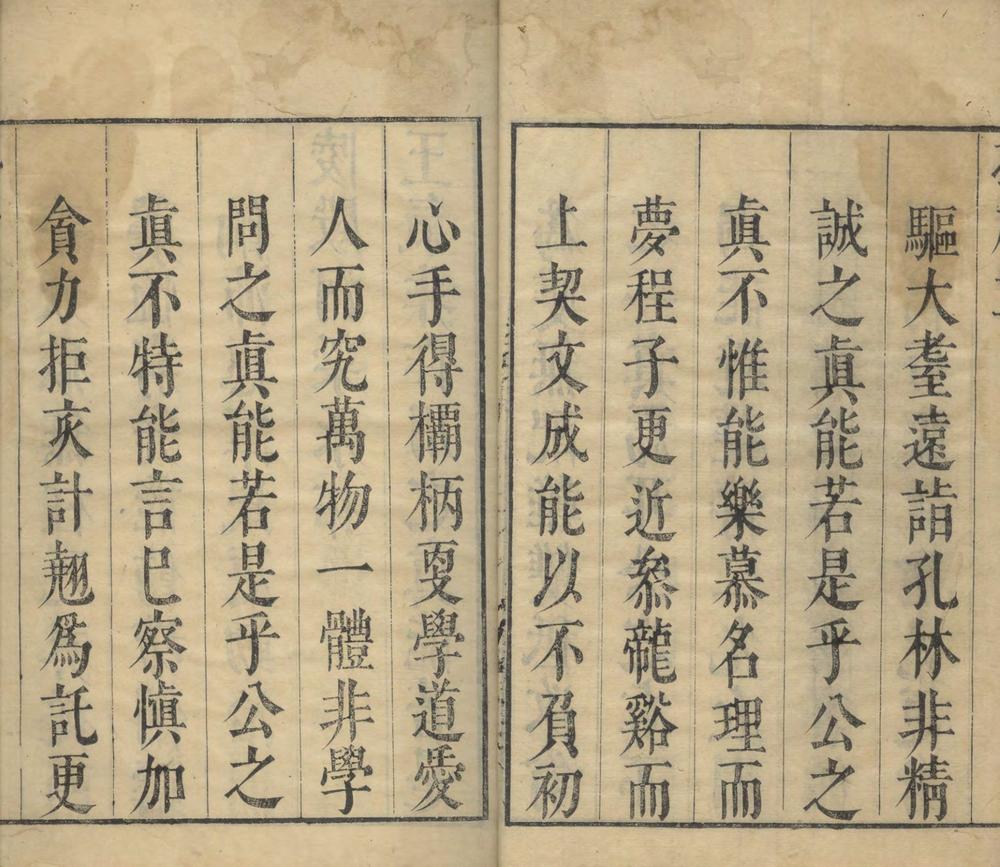 驅大耋遠詣孔林非精
誠之眞能若是乎公之
眞不惟能樂慕名理而
夢程子更近叅龍谿而
上契文成能以不負初
心手得欛柄叓學道愛
人而究萬物一體非學
問之眞能若是乎公之
眞不特能言巳察愼加
貪力拒亥計翹爲託更